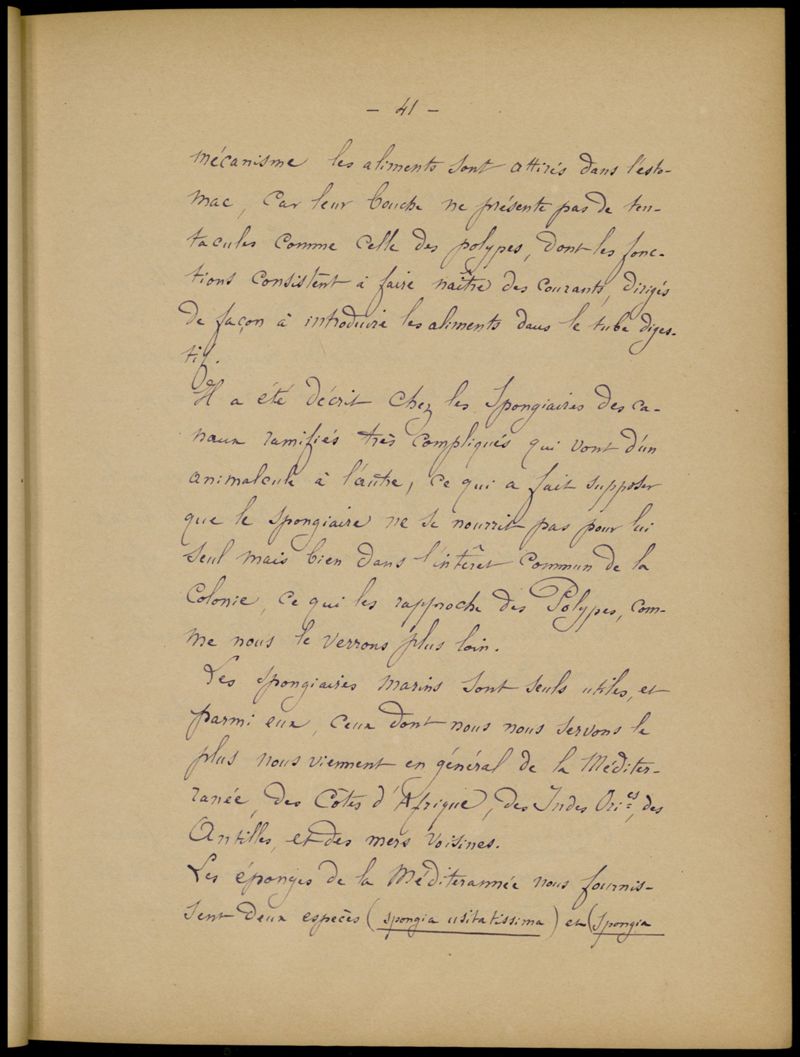 - 41 -
mécanisme les aliments sont attirés dans l'esto-
mac, car leur bouche ne présente pas de ten-
tacules comme celle des polypes, dont les fonc-
tions consistent à faire naître des courants, dirigés
de façon à introduire les aliments dans le tube diges-
tif.
Il a été décrit chez les Spongiaires des ca-
naux ramifiés très compliqués qui vont d'un
animalcule à l'autre, ce qui a fait supposer
que le spongiaire ne se nourrit pas pour lui
seul mais bien dans l'intérêt commun de la
Colonie, ce qui les rapproche des Polypes, com-
me nous le verrons plus loin.
Les spongiaires marins sont seuls utiles, et
parmi eux, ceux dont nous nous servons le
plus nous viennent en général de la Méditer-
ranée, des Côtes d'Afrique, des Indes Ori.es, des
Antilles, et des mers voisines.
Les éponges de la Méditerannée nous fournis-
sent deux espèces (spongia usitatissima) et (Spongia